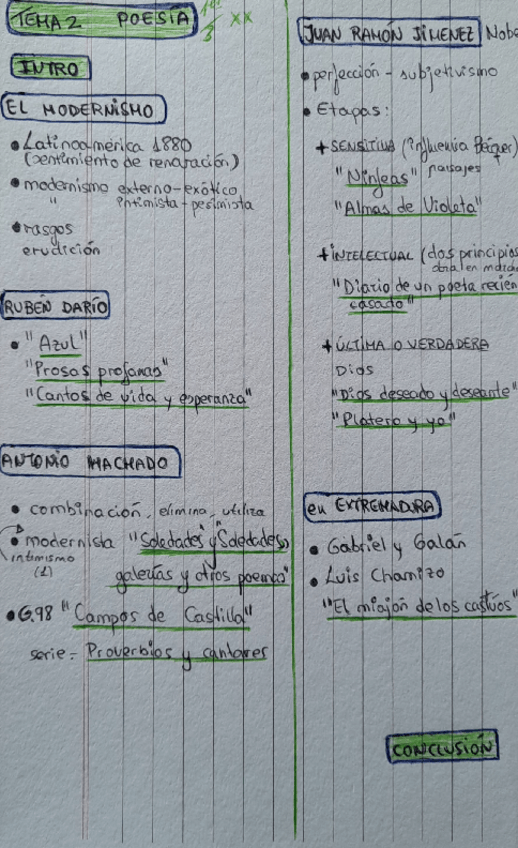 TEMA 2 POESÍA 1er/3 XX
INTRO
EL MODERNISMO
• Latinoamérica 1880
(sentimiento de renovación)
• modernismo externo-exótico
" intimista-pesimista
• rasgos
erudición
RUBÉN DARÍO
• "Azul"
"Prosas profanas"
"Cantos de vida y esperanza"
ANTONIO MACHADO
• combinación, elimina, utiliza
• modernista "Soledades" y "Soledades,
intimismo
(1)
galerías y otros poemas"
• G.98 "Campos de Castilla"
serie = Proverbios y cantares
JUAN RAMÓN JIMENEZ Nobe
• perfección - subjetivismo
• Etapas:
+ SENSITIVA (influencia Béquer)
"Ninfeas" paisajes
"Almas de Violeta"
+ INTELECTUAL (dos principios
"Diario de un poeta recién
casado"
+ ÚLTIMA O VERDADERA
Dios
"Dios deseado y deseante"
"Platero y yo"
en EXTREMADURA
• Gabriel y Galán
• Luis Chamizo
"El miajón de los castúos"
CONCLUSIÓN